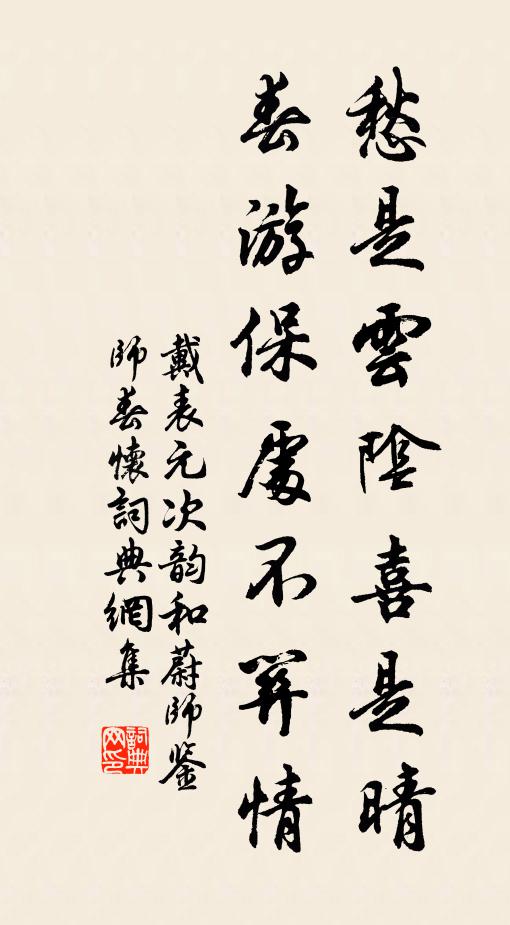 愁是雲陰喜是晴
春游保處不關情
戴表元次韵和蔚師鑒
師春懷詞典網集
詞典
网印